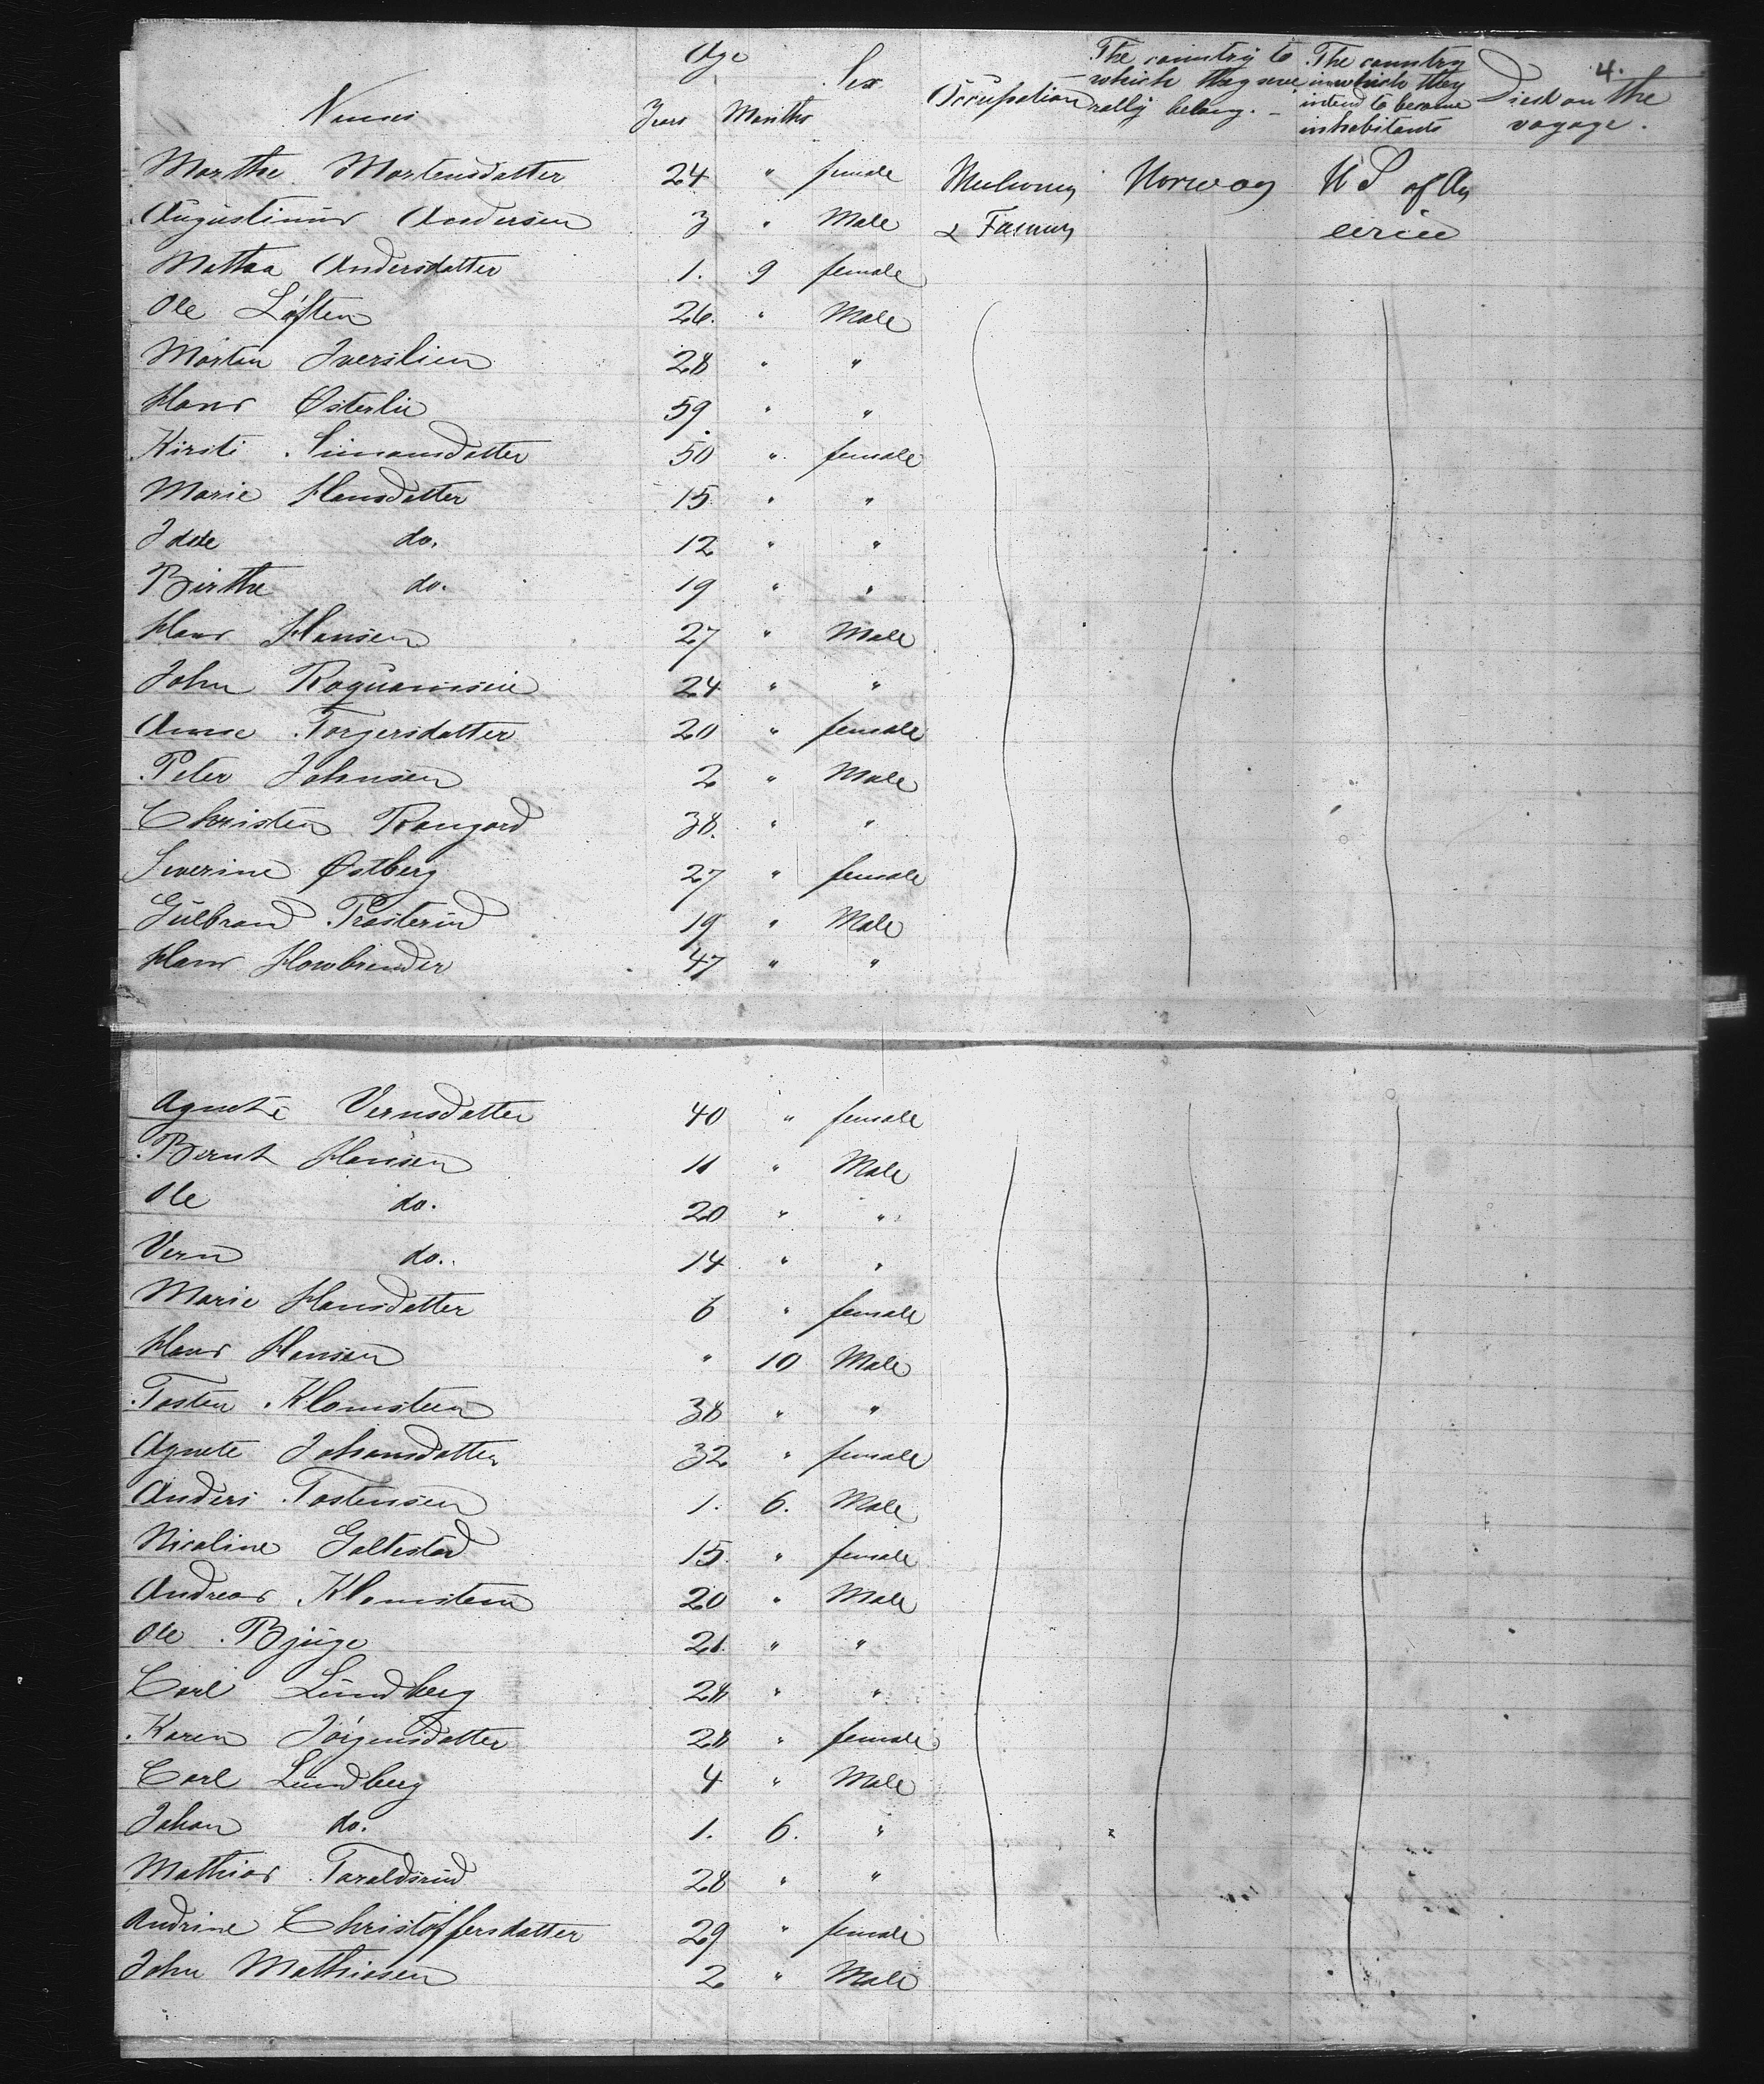 4.
Names Age Years Months Sex Occupation The country to which they severally belong. The country in which they intend to become inhabitants Died on the voyage.
Marthe Mortensdatter 24 " female Norway U S of Am
Augustinus Andersen 3 " Male & erica
Mathea Andersdatter 1. 9 female
Ole Løften 26. " Male
Morten Iverslien 28 " "
Hans Østerlie 59 " "
Kirsti Simonsdatter 50 " female
Marie Hansdatter 15 " "
do. 12 " "
Birthe do. 19 " "
Hans Hansen 27 " Male
John 24 " "
Anne Torgersdatter 20 " female
Peter Johnsen 2 " Male
Christen 38. " "
Severine Østberg 27 " female
Gulbrand 19 " Male
Hans 47 " "
Agnethe Vernsdatter 40 " female
Bernt Hansen 11 " Male
Ole do. 20 " "
Vern do. 14 " "
Marie Hansdatter 6 " female
Hans Hansen " 10 Male
Tosten Klomsteen 38 " "
Agnete Johansdatter 32 " female
Anders Tostensen 1. 6. Male
Nicoline Galtestad 15 " female
Andreas Klomsteen 20 " Male
Ole Bjuge 21. " "
Carl Lundberg 28 " "
Karen Jörgensdatter 28 " female
Carl Lundberg 4 " Male
Johan do. 1. 6. "
Mathias Taraldsrud 28 " "
Andrine Christoffersdatter 29 " female
John Mathiasen 2 " Male